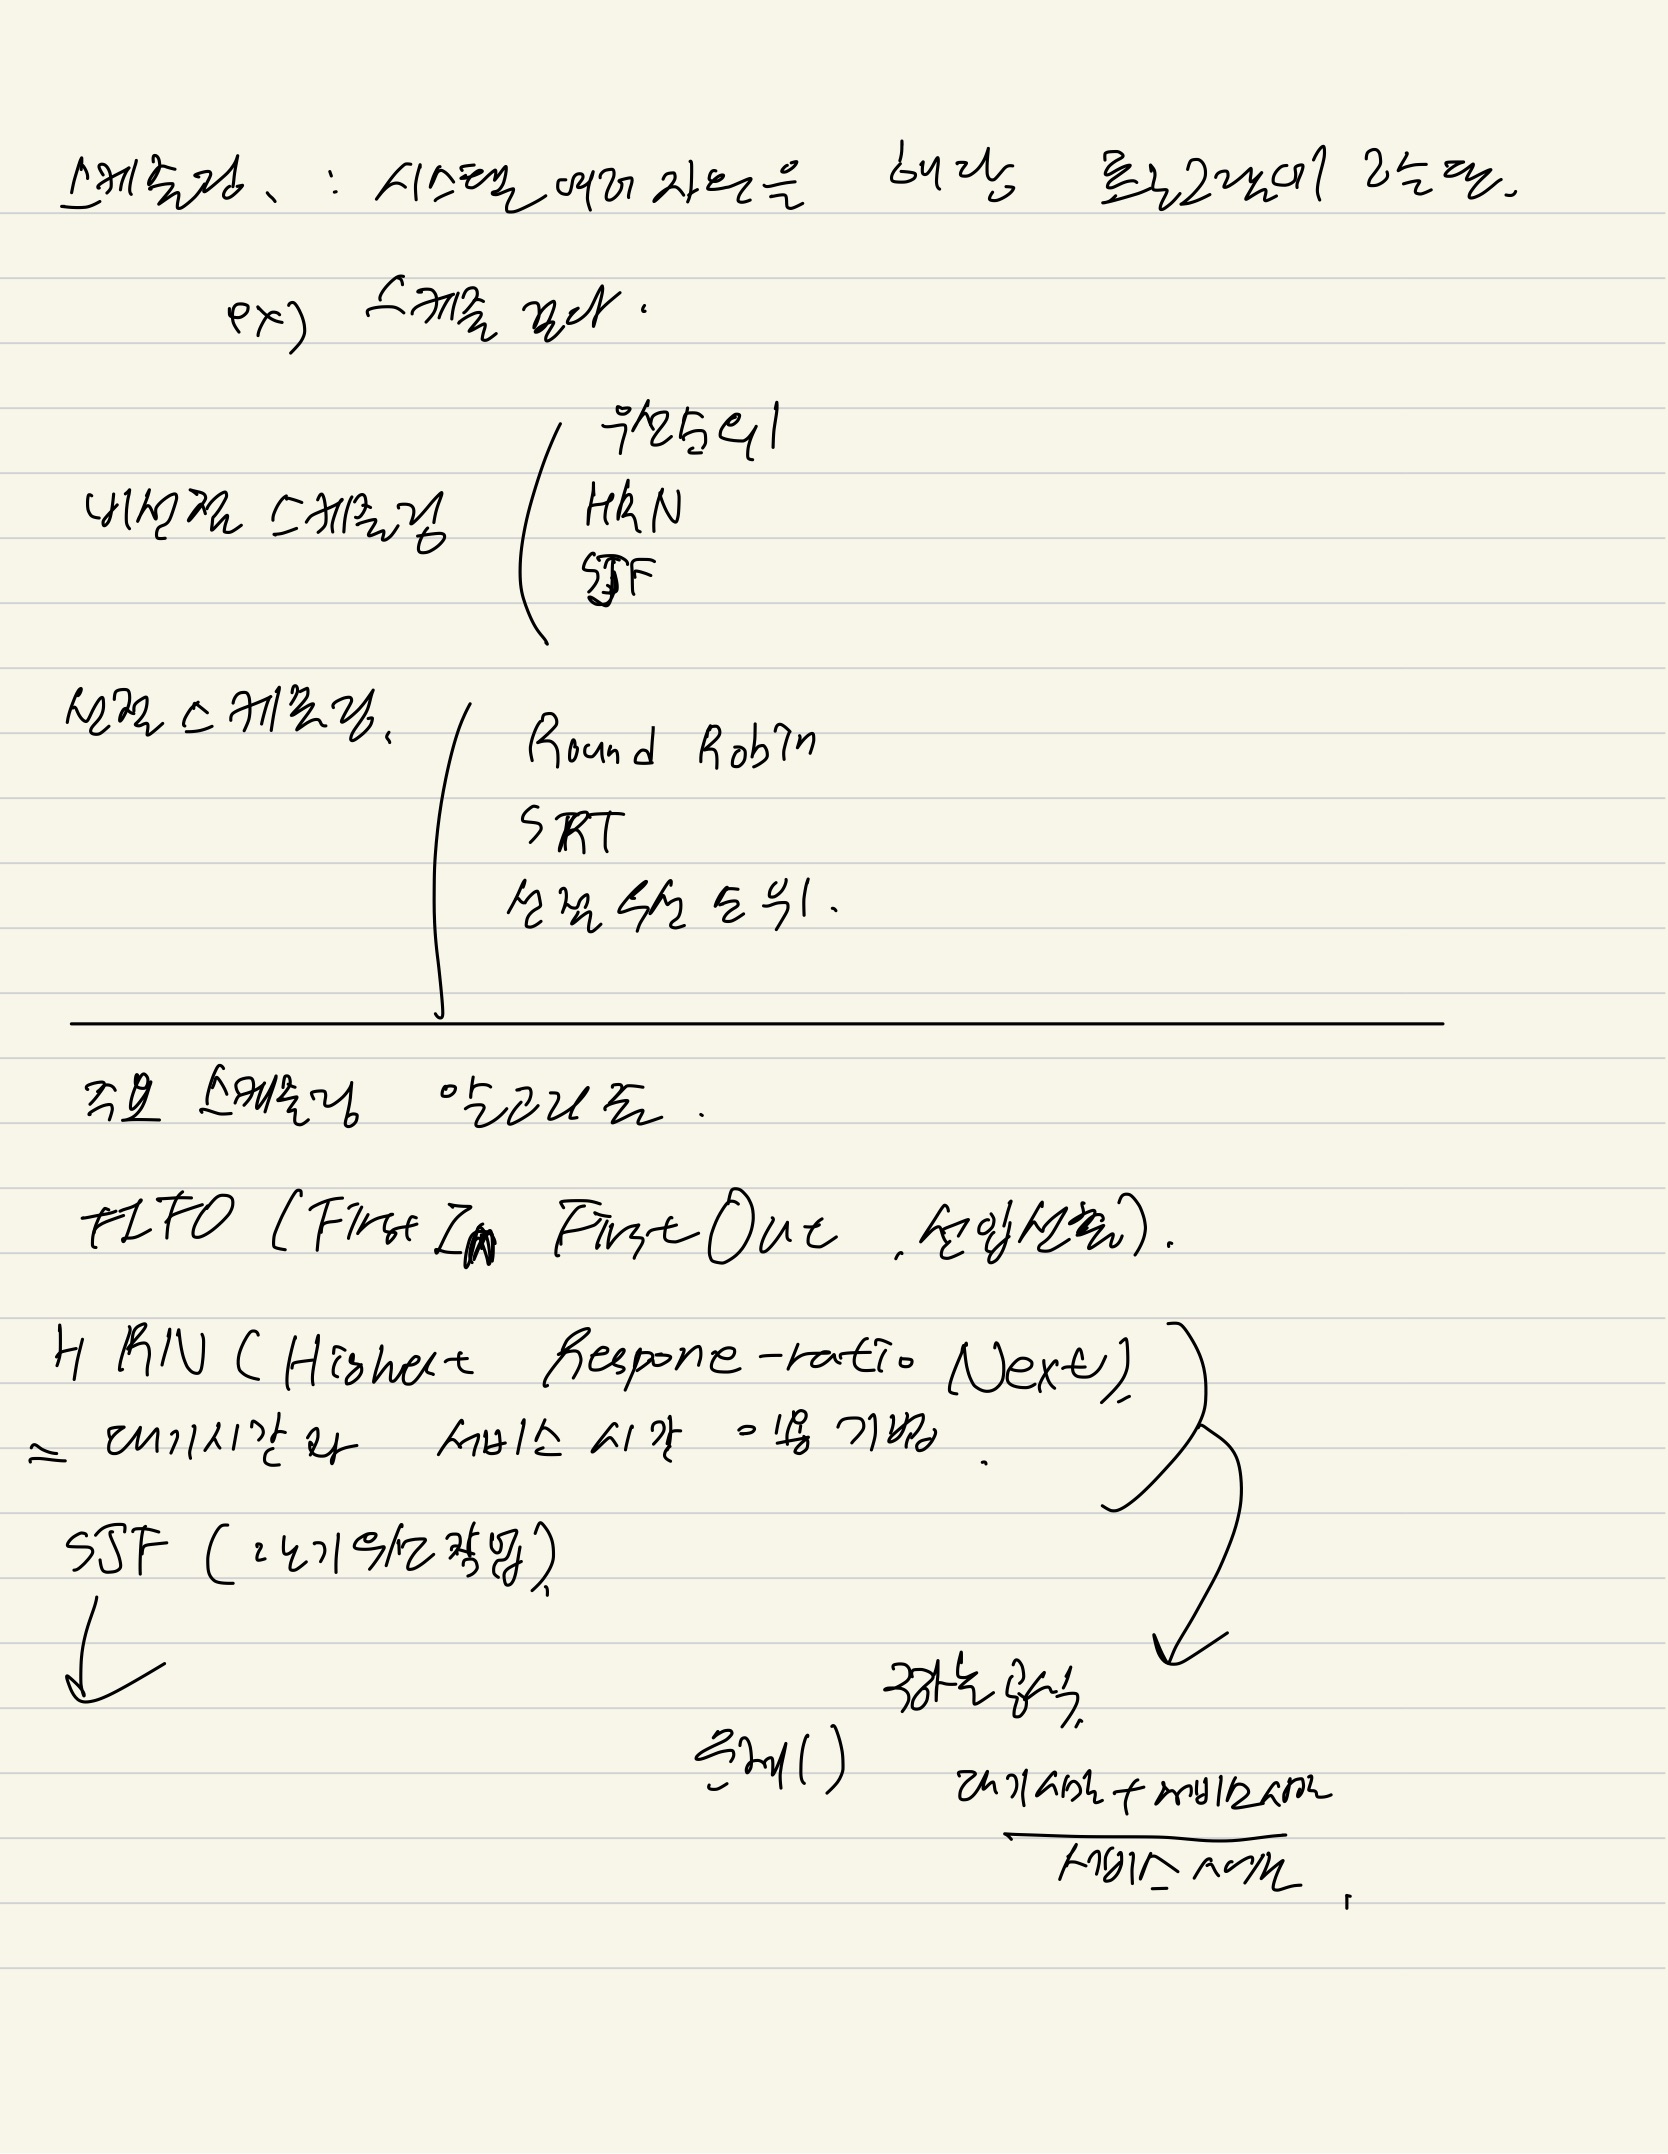 스케줄링 : 시스템 여러 자원을 해당 프로그램에
ex) 스케줄 결과.
우선순위
비선점 스케줄링
HRN
SJF
선점 스케줄링.
Round Robin
SRT
선점 우선순위.
주요 스케줄링 알고리즘.
FIFO (First In First Out, 선입선출).
HRN (Highest Respone-ratio Next).
= 대기시간과 서비스 시간 이용 기법.
SJF (단기위주작업).
구하는 공식.
문제( )
대기시간 + 서비스시간
서비스 시간